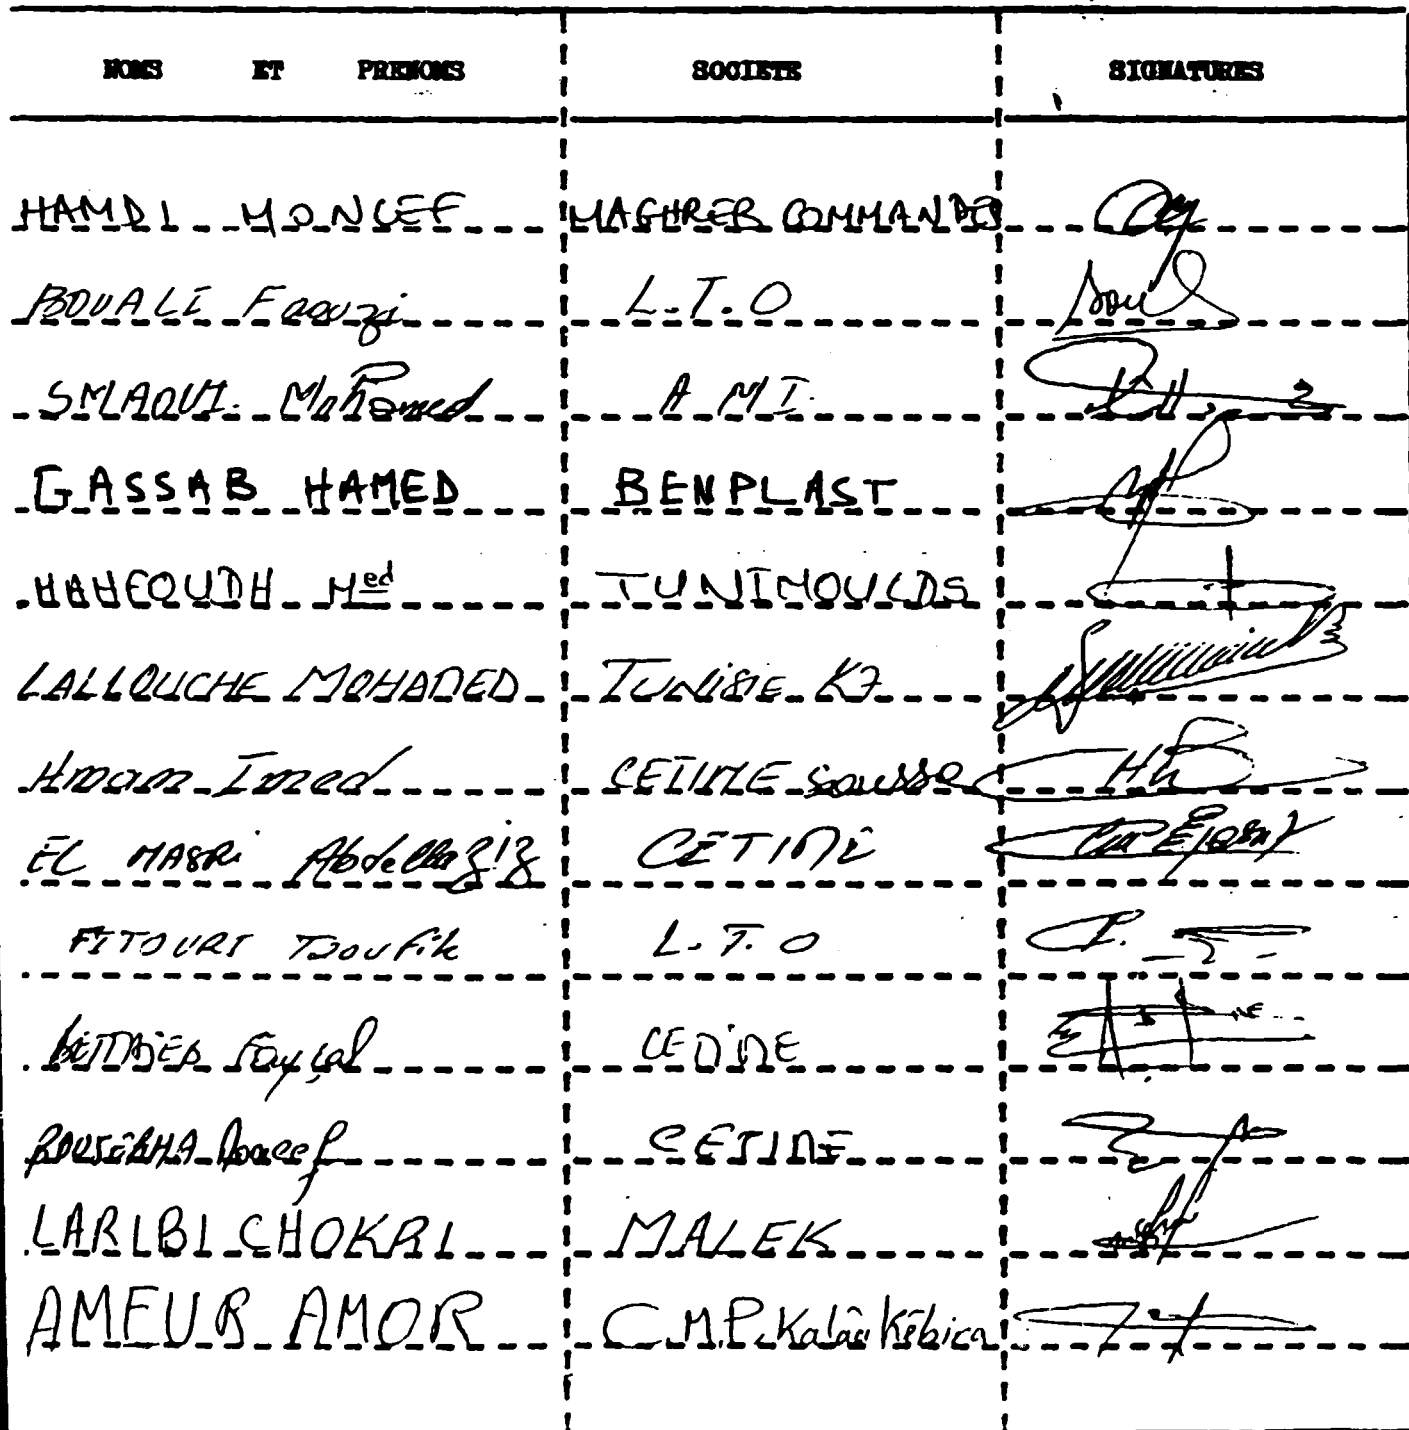 NOMS ET PRENOMS SOCIETE SIGNATURES
HAMDI MONCEF MAGHREB COMMANDES
BOUALI Faouzi L.T.O
SMAOUI. Mohamed A.M.I.
GASSAB HAMED BENPLAST
HAHFOUDH Med TUNIMOULDS
LALLOUCHE MOHAMED TUNISIE K7
Hmam Imed CETIME Sousse
EL MASRI Abdellaziz CETIME
FITOURI Taoufik L.T.O
Fayçal CETIME
CETIME
LARIBI CHOKRI MALEK
AMEUR AMOR C.M.P. Kalâa Kébira